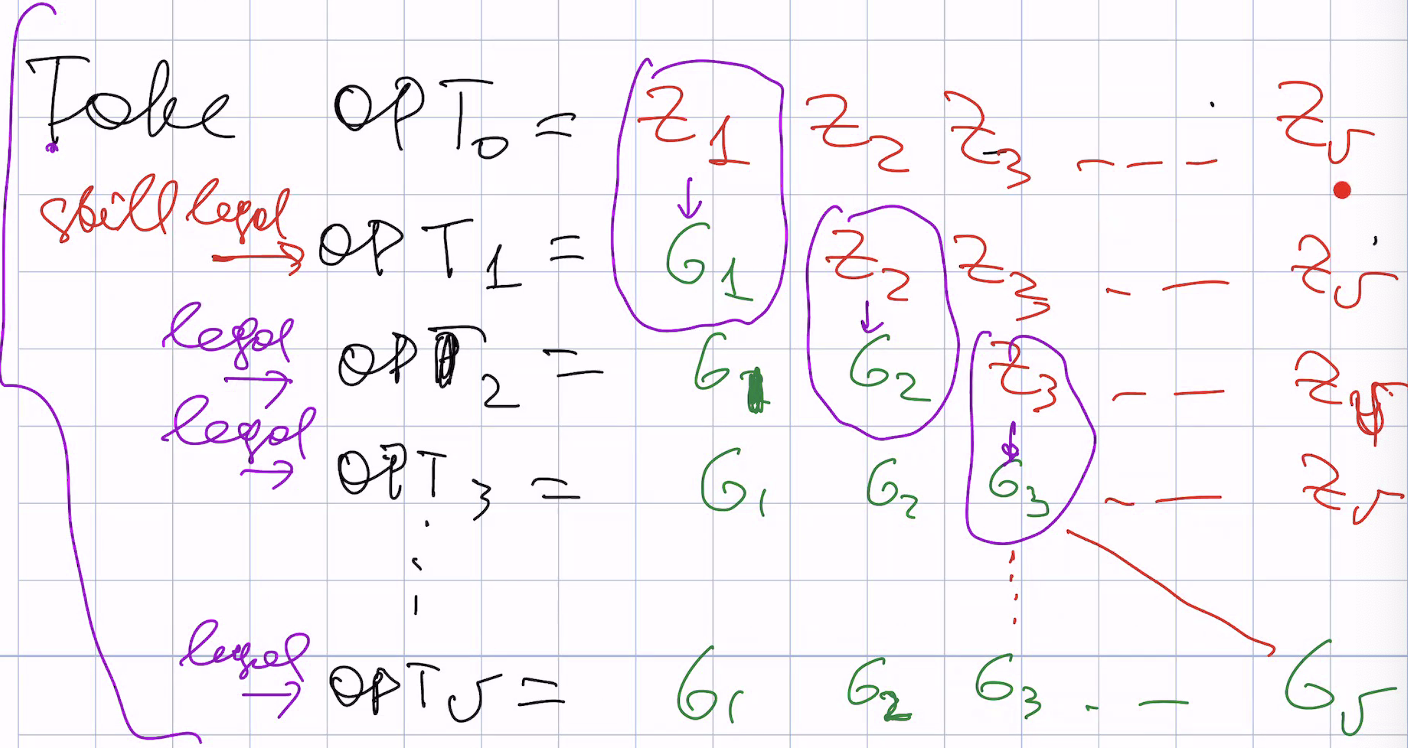 Take OPT₀ = Z₁ Z₂ Z₃ - - - - Z₅
still legal → OPT₁ = ↓ G₁ Z₂ Z₃ - — Z₅
legal → OPT₂ = G₁ ↓ G₂ Z₃ - — Z₅
legal → OPT₃ = G₁ G₂ ↓ G₃ - — Z₅
legal → OPT₅ = G₁ G₂ G₃ - — G₅